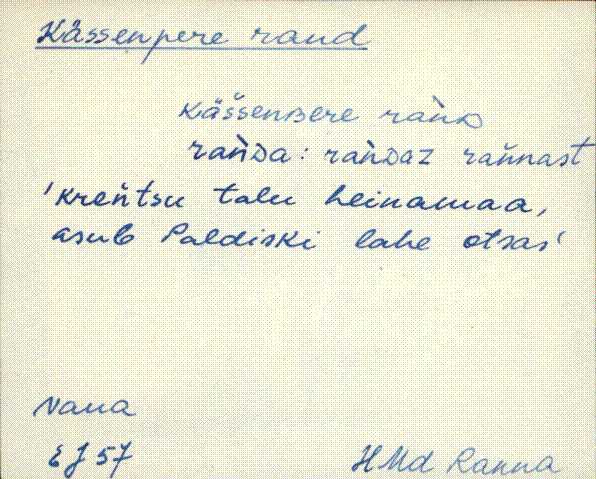 Kässenpere rand
käššenʙere ràǹᴅ
ràǹᴅa: ràǹᴅaz rañnast
'kreñtsu talu heinamaa,
asub Paldiski lahe otsas'
Vana
EJ 57
HMd Ranna